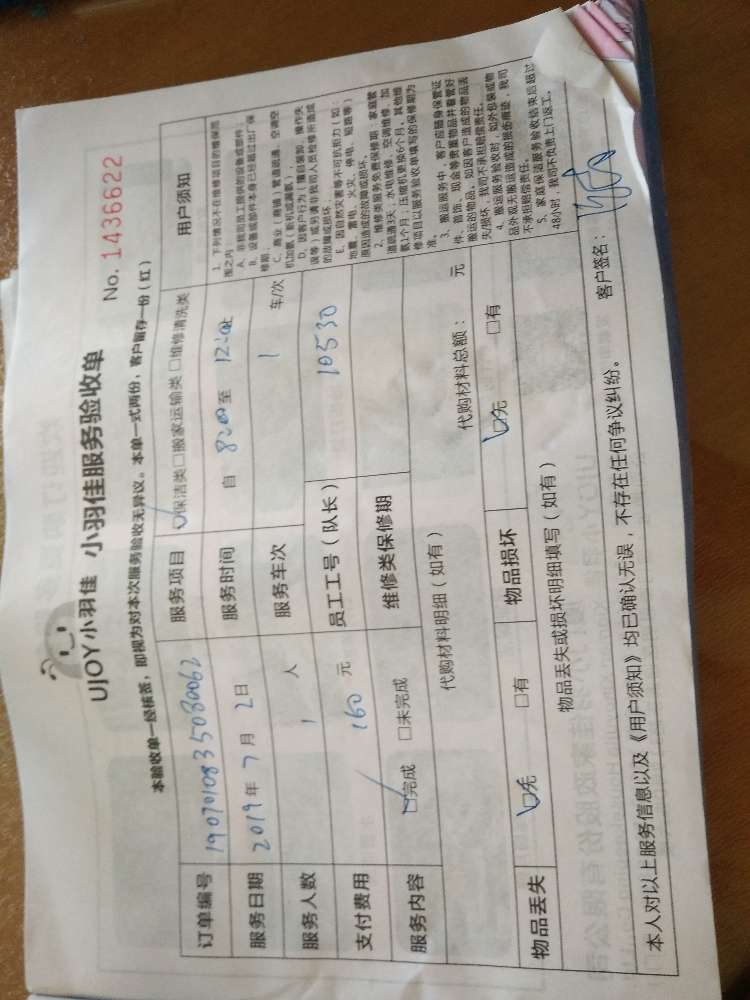 UJOY小羽佳 小羽佳服务验收单
No. 1436622
本验收单一经核签，即视为对本次服务验收无异议。本单一式两份，客户留存一份（红）
订单编号 1907010835030062 服务项目 □保洁类□搬家运输类 □维修清洗类
服务日期 2019年 7月 2日 服务时间 自 8:00 至 12:00止
服务人数 1 人 服务车次 1 车/次
支付费用 160 元 员工工号（队长） 10530
服务内容 □完成 □未完成 维修类保修期
代购材料明细（如有） 代购材料总额： 元
物品丢失 □无 □有 物品损坏 □无 □有
物品丢失或损坏明细填写（如有）
用户须知
1、下列情况不在维修项目的维保范
围之内
A、非我司员工提供的设备或部件；
B、设备或部件本身已经超过出厂保
修期；
C、商业（商铺）管道疏通、空调空
机加氨（新机或漏氨）；
D、因客户行为（擅自装卸、操作失
误等）或另请非我公司人员检修所造成
的故障或损坏；
E、因自然灾害等不可抗拒力（如：
地震、雷电、火灾、停电、短路等）
原因造成的故障或损坏。
2、维修类服务免费保修期：家庭管
道疏通3天；水电维修、空调维修、加
氨1个月；压缩机更换6个月。其他维
修项目以服务验收单填写的保修期为
准。
3、搬运服务中，客户应随身保管证
件、首饰、现金等贵重物品并看管好
搬运的物品。如因客户造成的物品丢
失/损坏，我司不承担赔偿责任。
4、搬运服务验收时，如外包装或物
品外观无搬运造成的损伤痕迹，我司
不承担赔偿责任。
5、家庭保洁服务验收结束后超过
48小时，我司不负责上门返工。
本人对以上服务信息以及《用户须知》均已确认无误，不存在任何争议纠纷。 客户签名：